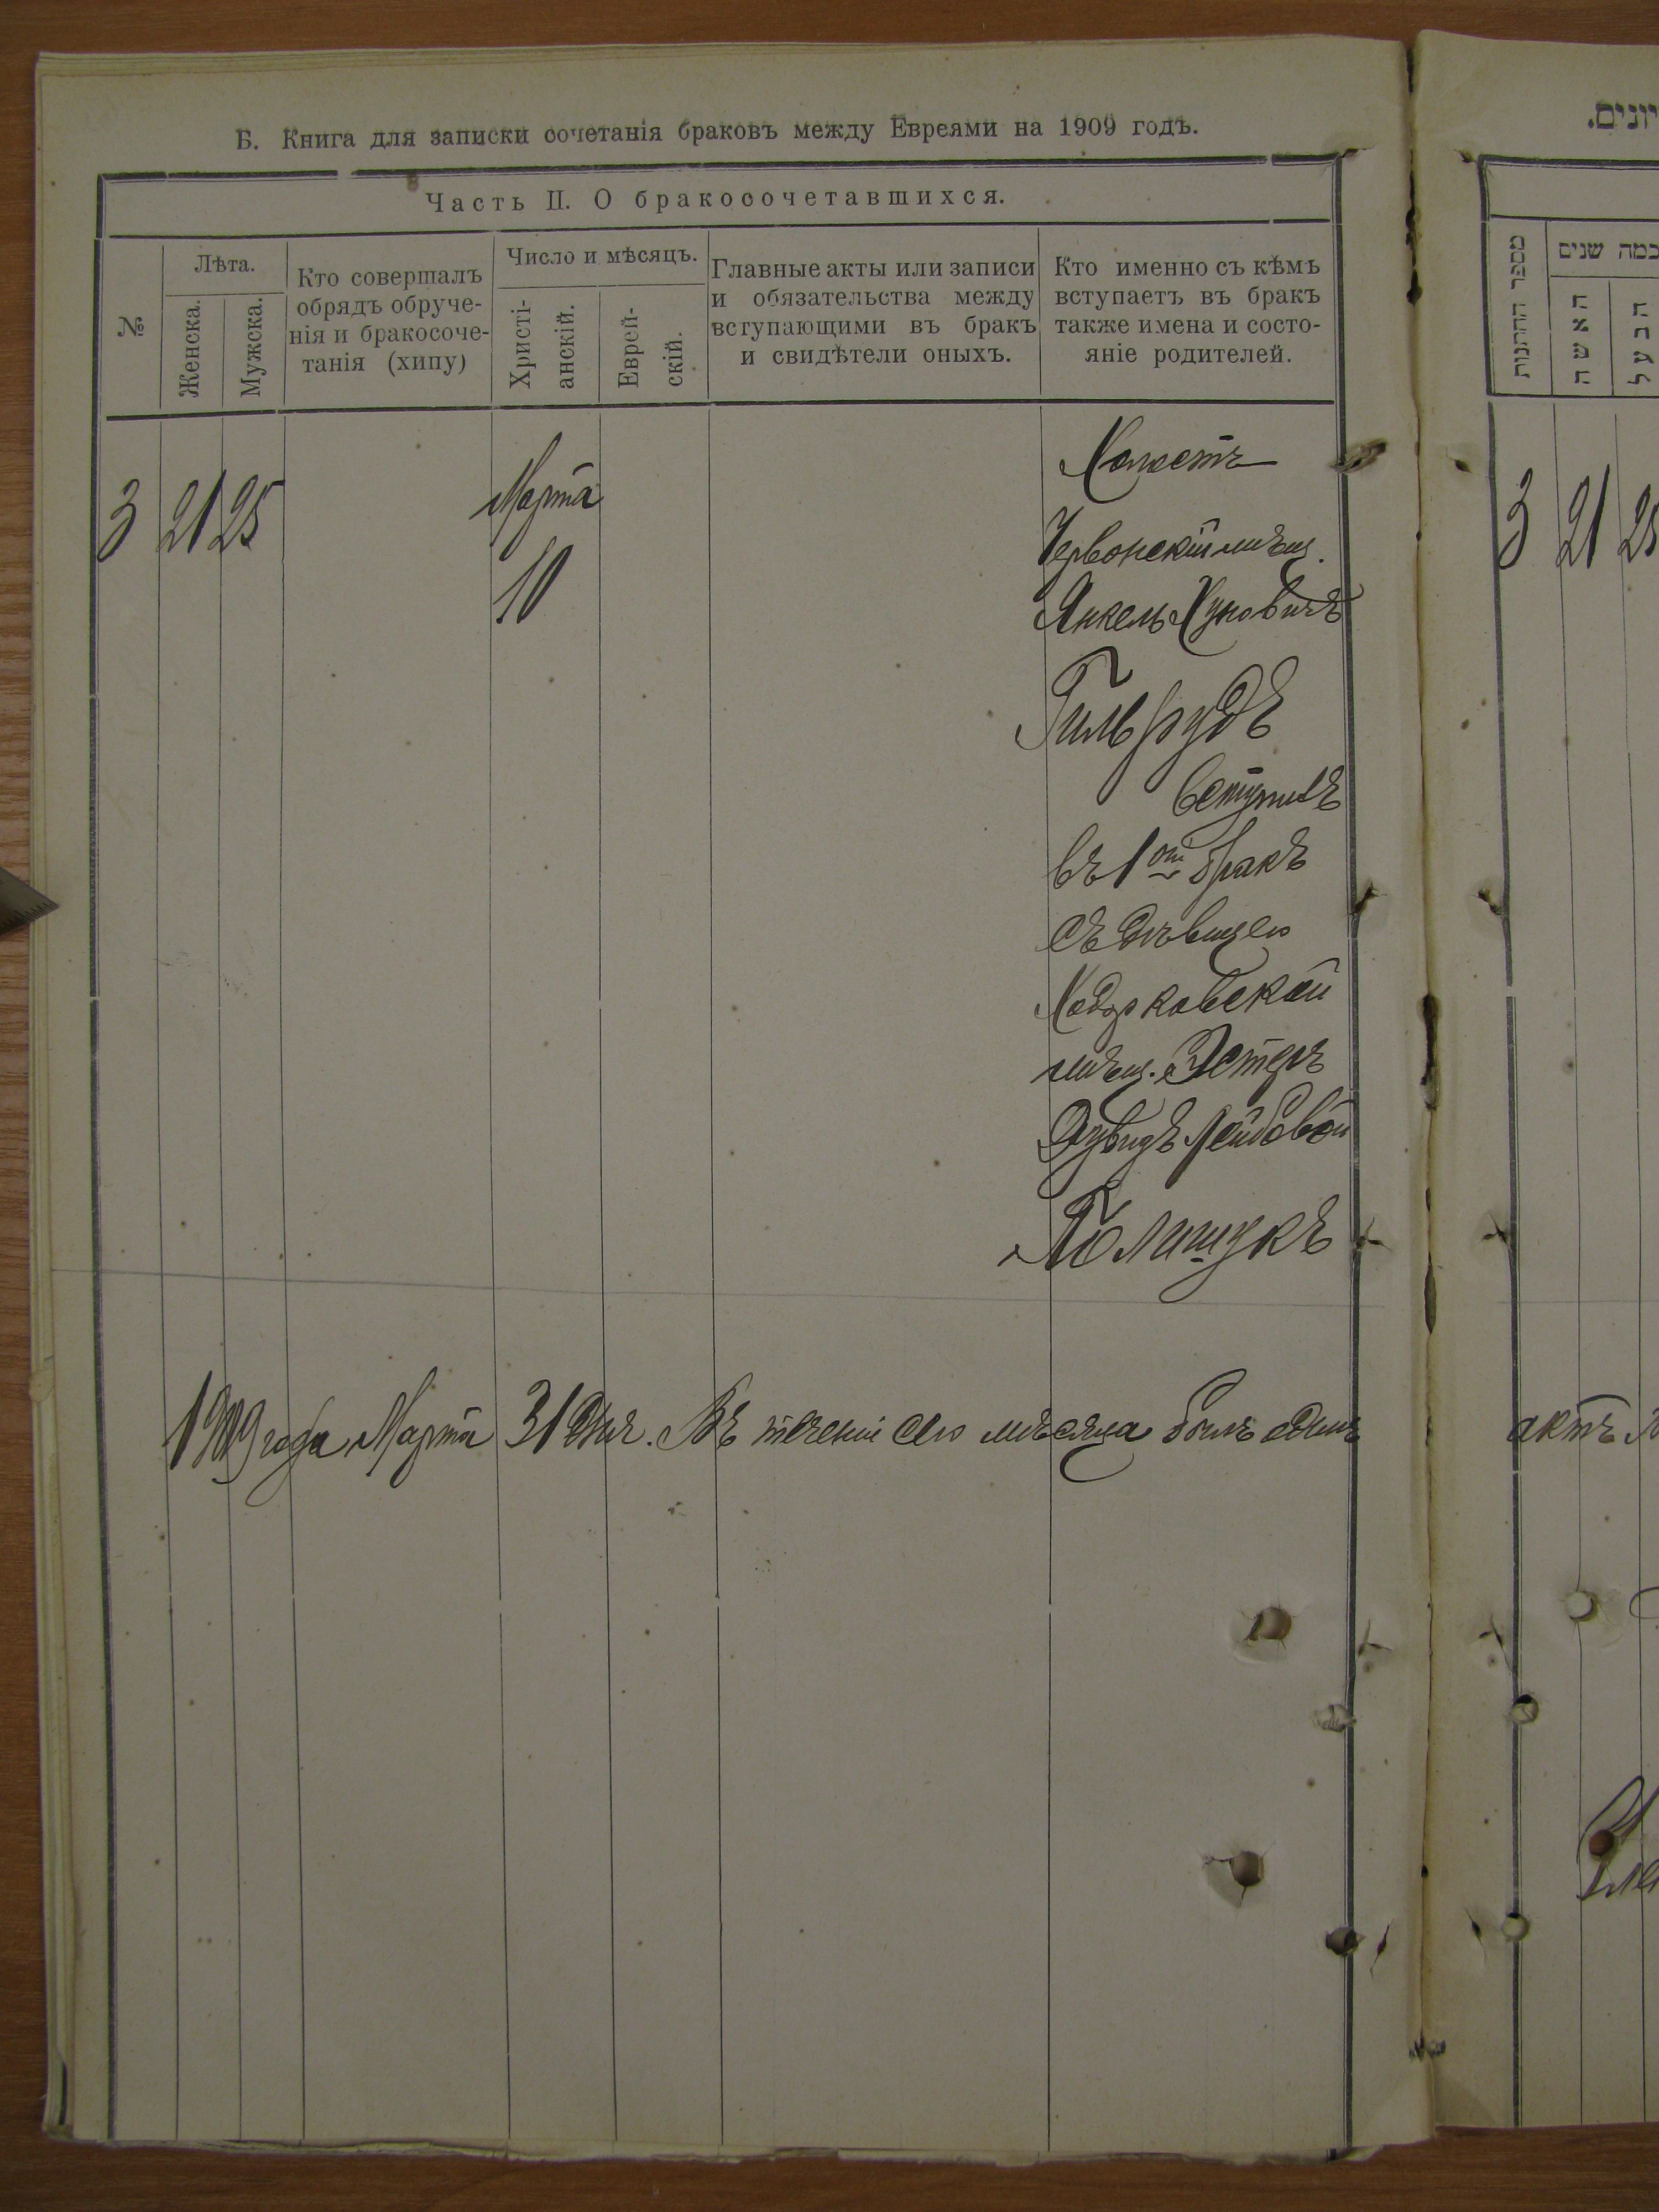 Б. Книга для записки сочетанія браковъ между Евреями на 1909 годъ.
Часть II. О бракосочетавшихся.
№
Лѣта.
Женска.
Мужска.
Кто совершалъ
обрядъ обруче-
нія и бракосоче-
танія (хипу)
Число и мѣсяцъ.
Христі-
анскій.
Еврей-
скій.
Главные акты или записи
и обязательства между
вступающими въ бракъ
и свидѣтели оныхъ.
Кто именно съ кѣмъ
вступаетъ въ бракъ
также имена и состо-
яніе родителей.
3 21 25
Марта
10
Холостъ
Червонскій мѣщ.
Янкель Хуновичъ
Гильрудъ
вступилъ
въ 1ый бракъ
съ дѣвицею
Ходорковской
мѣщ. Эстеръ
Лейбовой
Полищукъ
1909 года Марта 31 дня. Въ теченіи сего мѣсяца былъ одинъ
актъ
יונים.
מספר החתונות
כמה שנים
האשה
הבעל
3 21 25